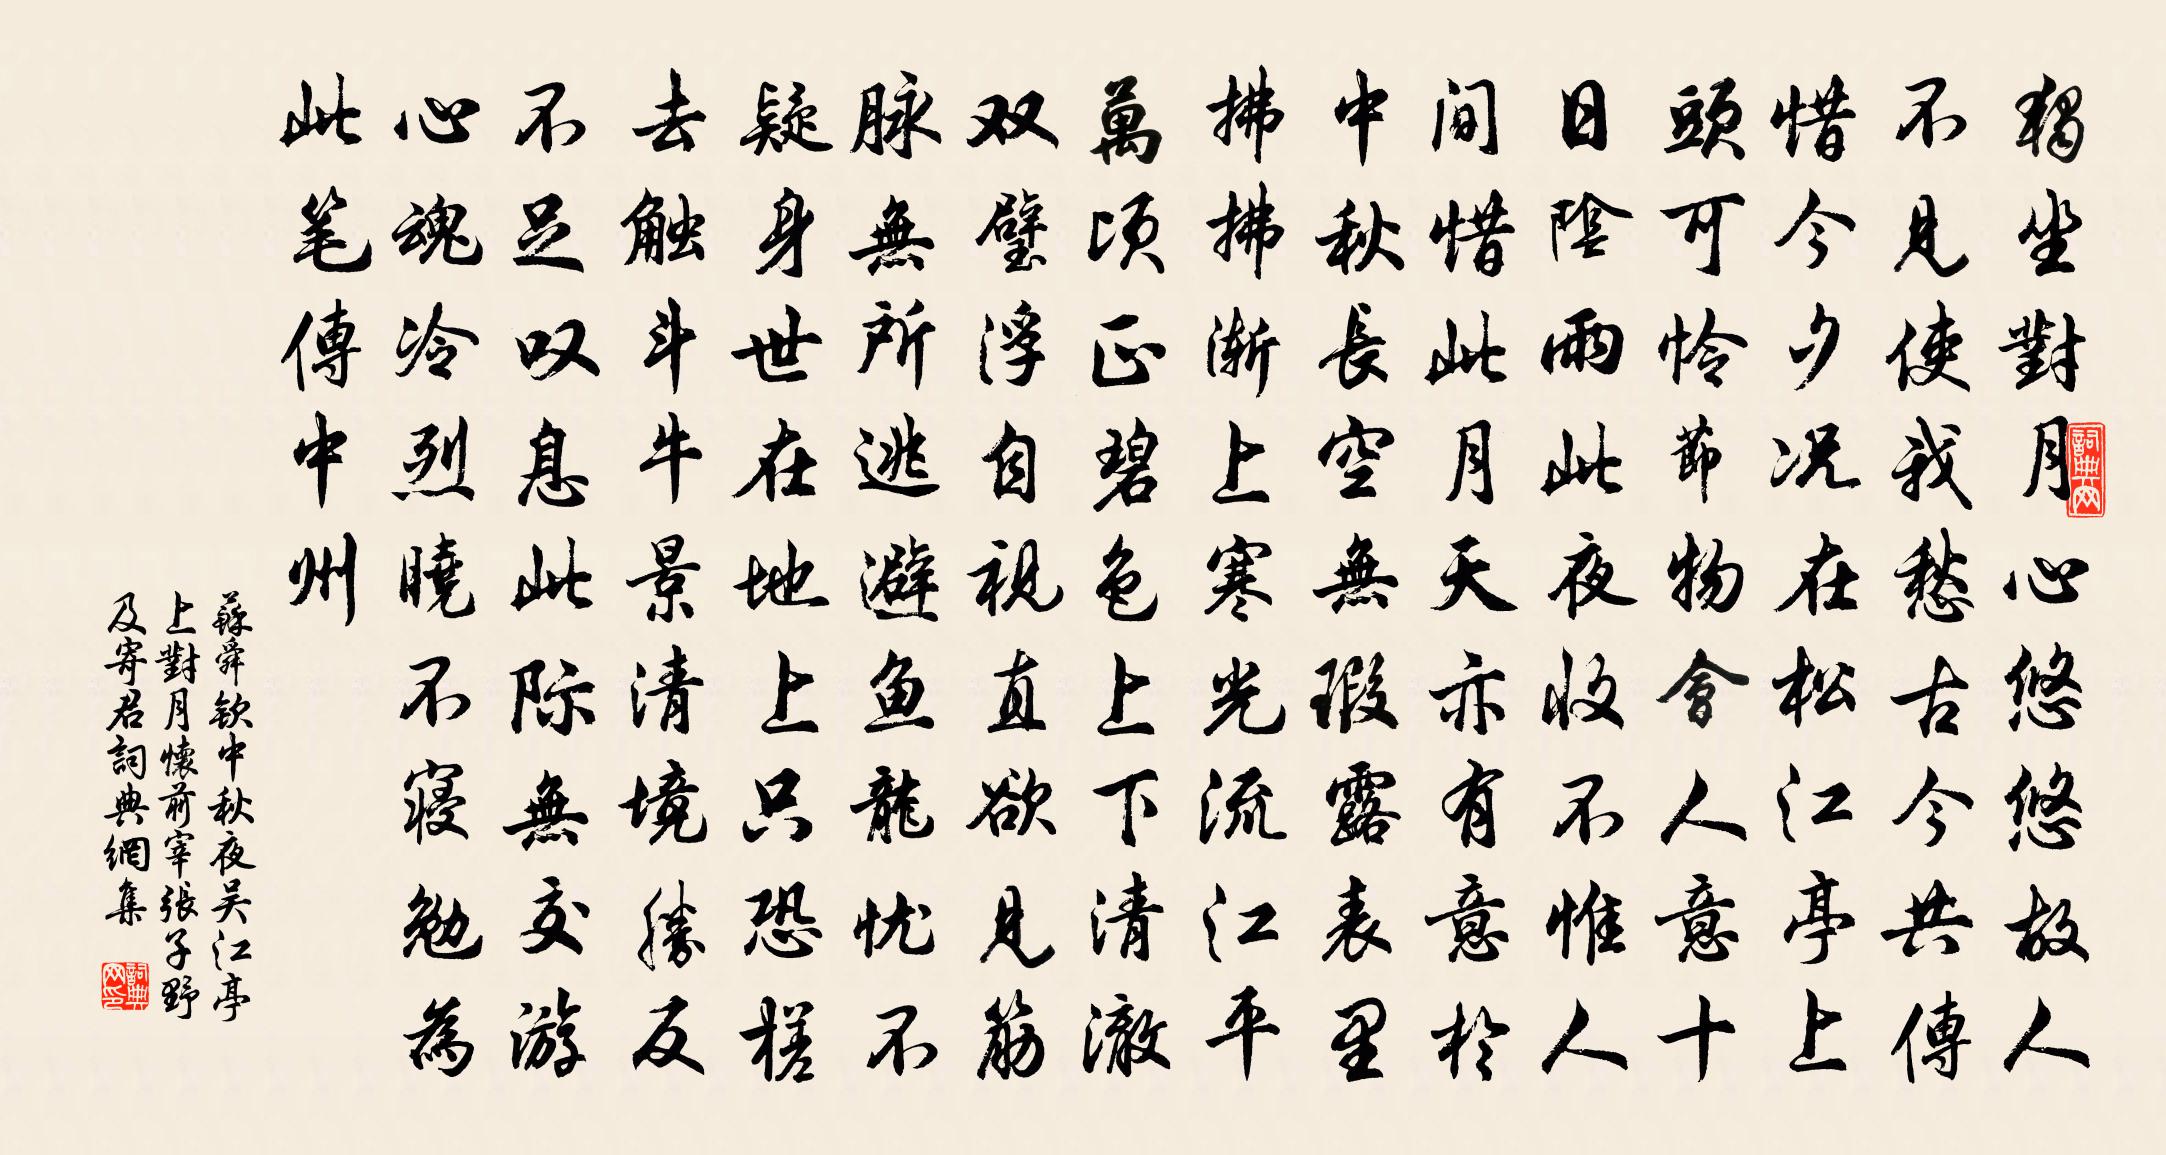 獨坐對月心悠悠故人
不見使我愁古今共傳
惜今夕况在松江亭上
頭可怜節物會人意十
日陰雨此夜收不惟人
间惜此月天亦有意於
中秋長空無瑕露表里
拂拂渐上寒光流江平
萬頃正碧色上下清澈
双璧浮自視直欲見筋
脉無所逃避鱼龍忧不
疑身世在地上只恐槎
去触斗牛景清境勝反
不足叹息此际無交游
心魂冷烈曉不寝勉為
此笔傳中州
蘇舜钦中秋夜吴江亭
上對月懷前宰張子野
及寄君詞典網集
詞典网
詞典网印